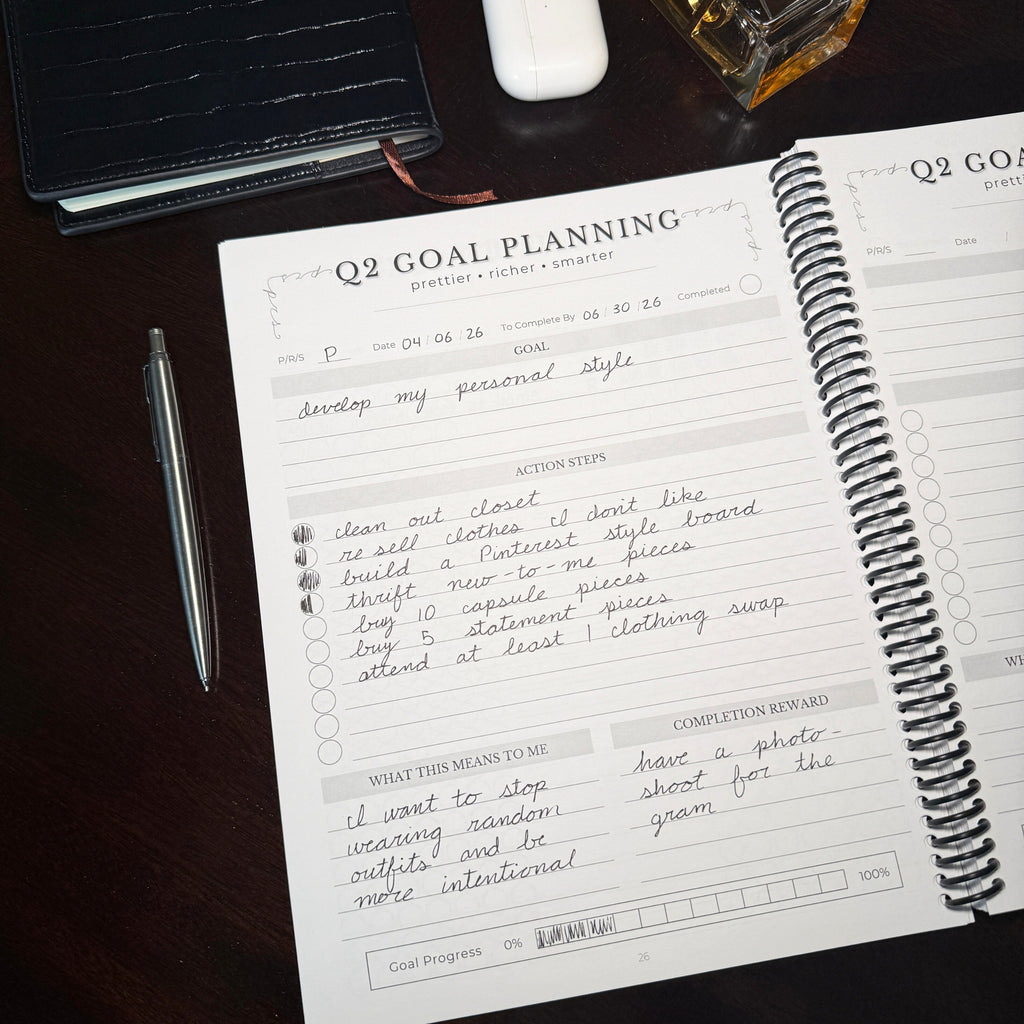 Q2 GOAL PLANNING
prettier • richer • smarter
P/R/S P Date 04 / 06 / 26 To Complete By 06 / 30 / 26 Completed
GOAL
develop my personal style
ACTION STEPS
clean out closet
re sell clothes I don't like
build a Pinterest style board
thrift new-to-me pieces
buy 10 capsule pieces
buy 5 statement pieces
attend at least 1 clothing swap
WHAT THIS MEANS TO ME
I want to stop
wearing random
outfits and be
more intentional
COMPLETION REWARD
have a photo-
shoot for the
gram
Goal Progress 0% 100%
26
Q2 GOA
pretti
P/R/S Date /
WH
prs prs
prs
prs prs
prs
prs
prs